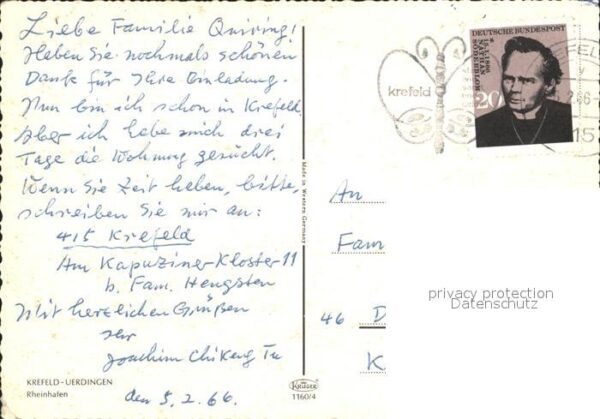 Liebe Familie Quiring!
Haben Sie nochmals schönen
Dank für Ihre Einladung.
Nun bin ich schon in Krefeld.
Aber ich habe mich drei
Tage die Wohnung gesucht.
Wenn Sie Zeit haben, bitte,
schreiben Sie mir an:
415 Krefeld
Am Kapuziner-Kloster 11
b. Fam. Hengsten
Mit herzlichen Grüßen
Ihr
Joachim Chikeng Tu
den 5.2.66.
KREFELD-UERDINGEN
Rheinhafen
Made in Western Germany
KRÜGER
1160/4
krefeld
DEUTSCHE BUNDESPOST
NATHAN
SÖDERBLOM
20
15
An
Fam
46 D
K
privacy protection
Datenschutz